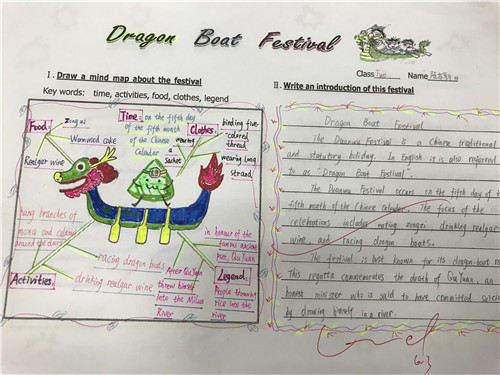 Dragon Boat Festival
Class Two Name
I. Draw a mind map about the festival
Key words: time, activities, food, clothes, legend
Food:
Zongzi
Wormwood cake
Realgar wine
Time: on the fifth day
of the fifth month
of the Chinese
Calendar
Clothes:
binding five-
colored
thread
wearing
a
Sachet
wearing long
Strand
hang branches of
moxa and calamus
around the doors
Activities:
racing dragon boats
drinking realgar wine
After Qu Yuan
threw himself
into the Miluo
River
in honour of the
famous ancient
poet, Qu Yuan
Legend:
People throwing
rice into the
river
II. Write an introduction of this festival
Dragon Boat Festival
The Duanwu Festival is a Chinese traditional
and statutory holiday. In English it is also referred
to as "Dragon Boat Festival".
The Duanwu Festival occurs on the fifth day of the
fifth month of the Chinese calender. The focus of the
celebrations includes eating zongzi drinking realgar
wine, and racing dragon boats.
The festival is best known for its dragon-boat
This regatta commemorates the death of Qu Yuan, an
honest minister who is said to have committed suicide
by drowing himself in a river.
6.3